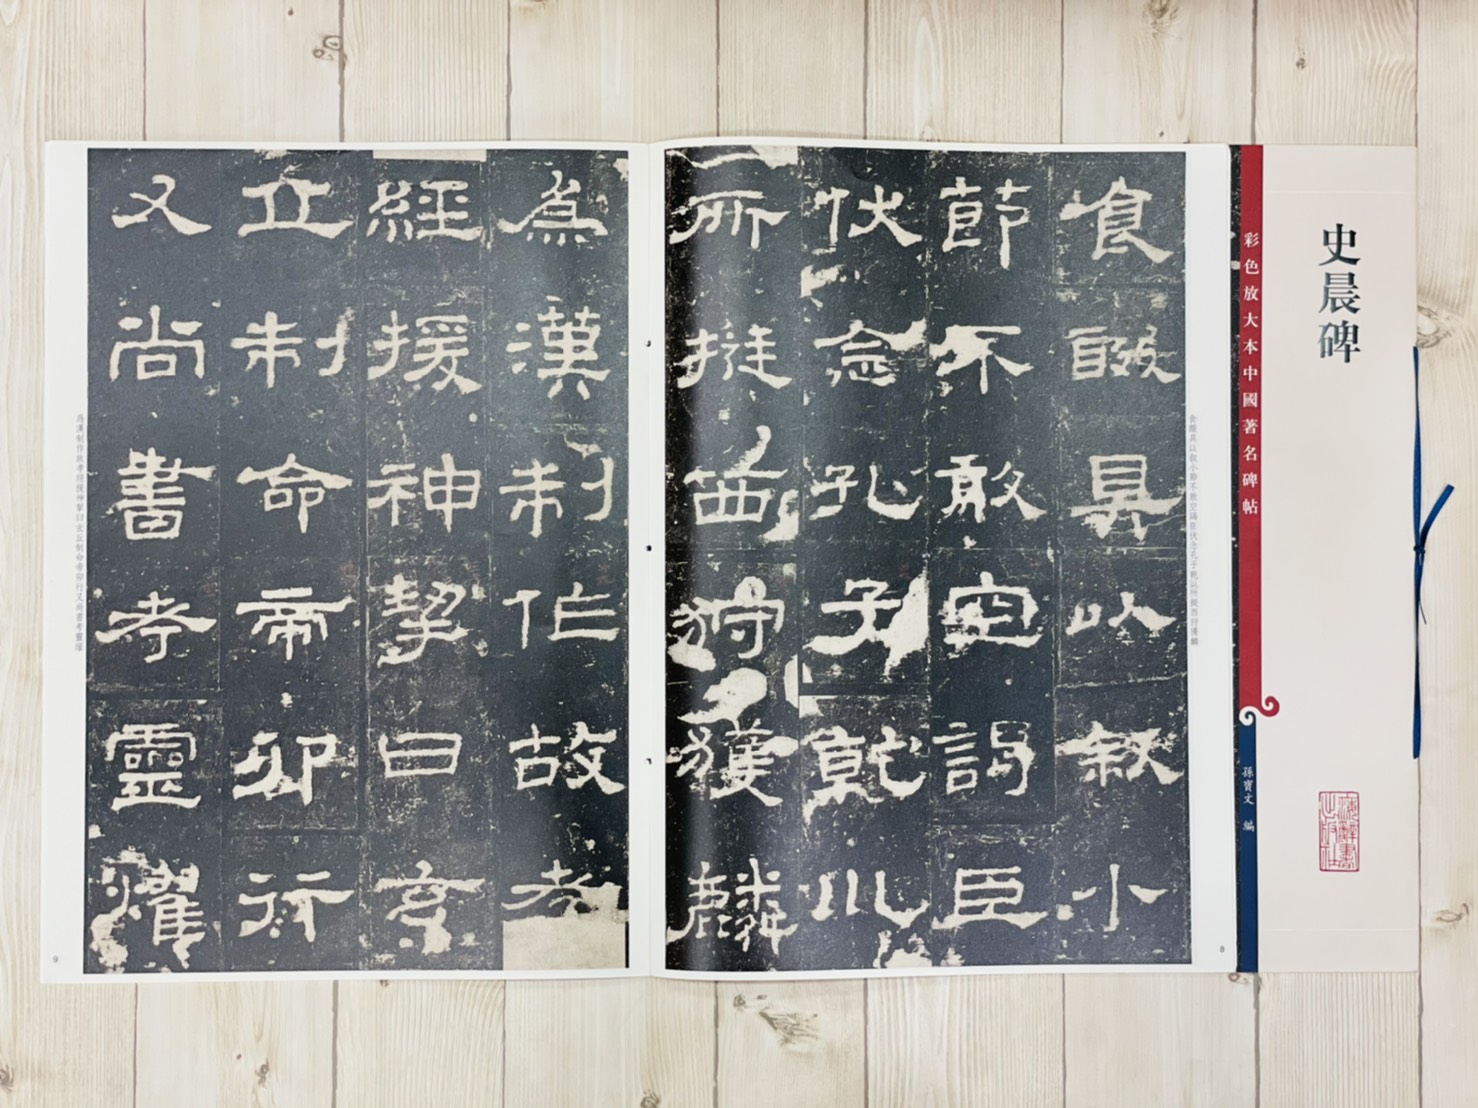 史晨碑
彩色放大本中國著名碑帖
孫寶文 編
食餟具以叙小節不敢空謁臣伏念孔子乾巛所挺西狩獲麟
食餟具以叙小
節不敢空謁臣
伏念孔子乾巛
所挺西狩獲麟
8
為漢制作故孝
經援神挈曰玄
丘制命帝卯行
又尚書考靈燿
為漢制作故孝經援神挈曰玄丘制命帝卯行又尚書考靈燿
9